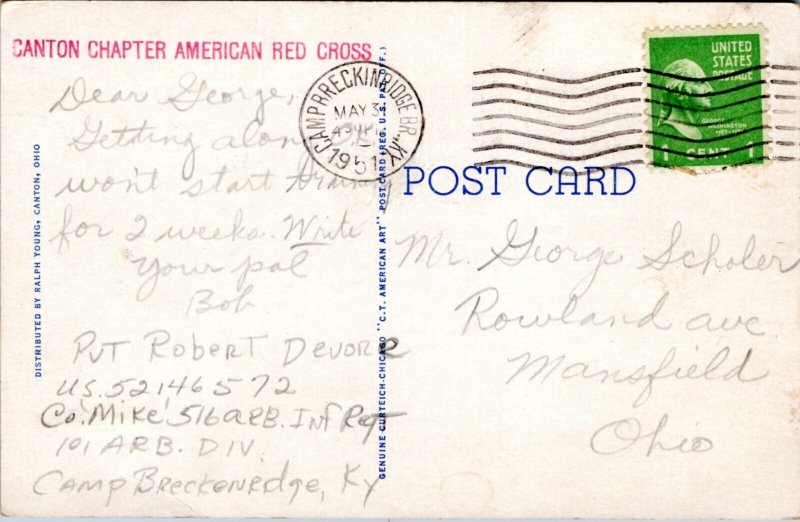 CANTON CHAPTER AMERICAN RED CROSS
Dear George,
Getting alon
won't start training
for 2 weeks. Write
your pal
Bob
Pvt Robert Devore
US. 52146572
Co. 'Mike' 516 ARB. Inf Regt
101 ARB. DIV.
Camp Breckenredge, Ky
DISTRIBUTED BY RALPH YOUNG, CANTON, OHIO
GENUINE CURTEICH-CHICAGO "C.T. AMERICAN ART" POST CARD (REG. U.S. PAT. OFF.)
CAMP BRECKINRIDGE BR., KY.
MAY 3
1951
UNITED
STATES
POSTAGE
GEORGE
WASHINGTON
1 CENT 1
POST CARD
Mr. George Scholer
Rowland ave
Mansfield
Ohio